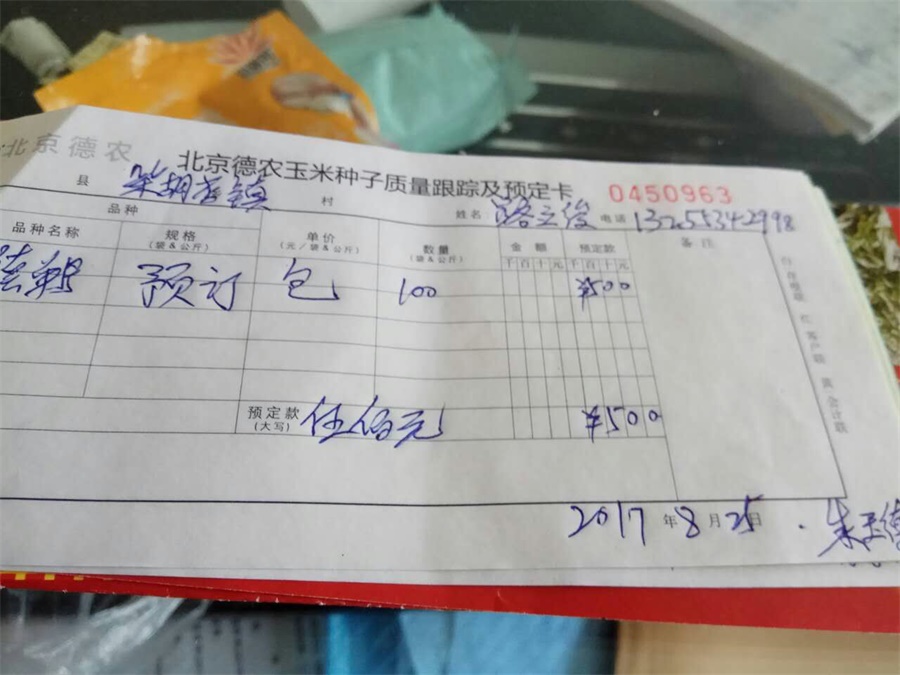 北京德农
北京德农玉米种子质量跟踪及预定卡 0450963
县 柴胡店镇 村 姓名 路立俊 电话 13255342998
品种
品种名称 规格 单价 数量 金额 预定款 备注
(袋&公斤) (元/袋&公斤) (袋&公斤) 千百十元 千百十元
预订 包 100 ¥500
预定款 伍佰元 ¥500
(大写)
2017年8月25日
白:存根联 红:客户联 黄:会计联